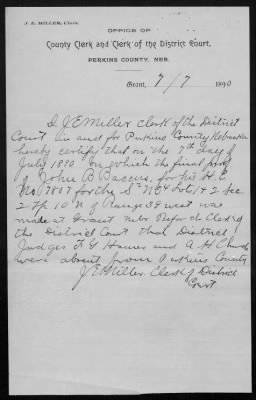 J. E. MILLER, Clerk.
OFFICE OF
County Clerk and Clerk of the District Court,
PERKINS COUNTY, NEB.
Grant, 7/7 1890
I J E Miller Clerk of the District
Court in and for Perkins County Nebraska
hereby certify that on the 7th day of
July 1890 on which the final proof
of John B Baccus, for his H.E.
No 1867 for the S½ NE4 Lots 1 + 2 Sec
2 Tp 10 N of Range 39 west was
made at Grant Nebr before the Clerk of
the District Court that District
Judges F G Hamer and A H Church
were absent from Perkins County
J E Miller Clerk of District
Court